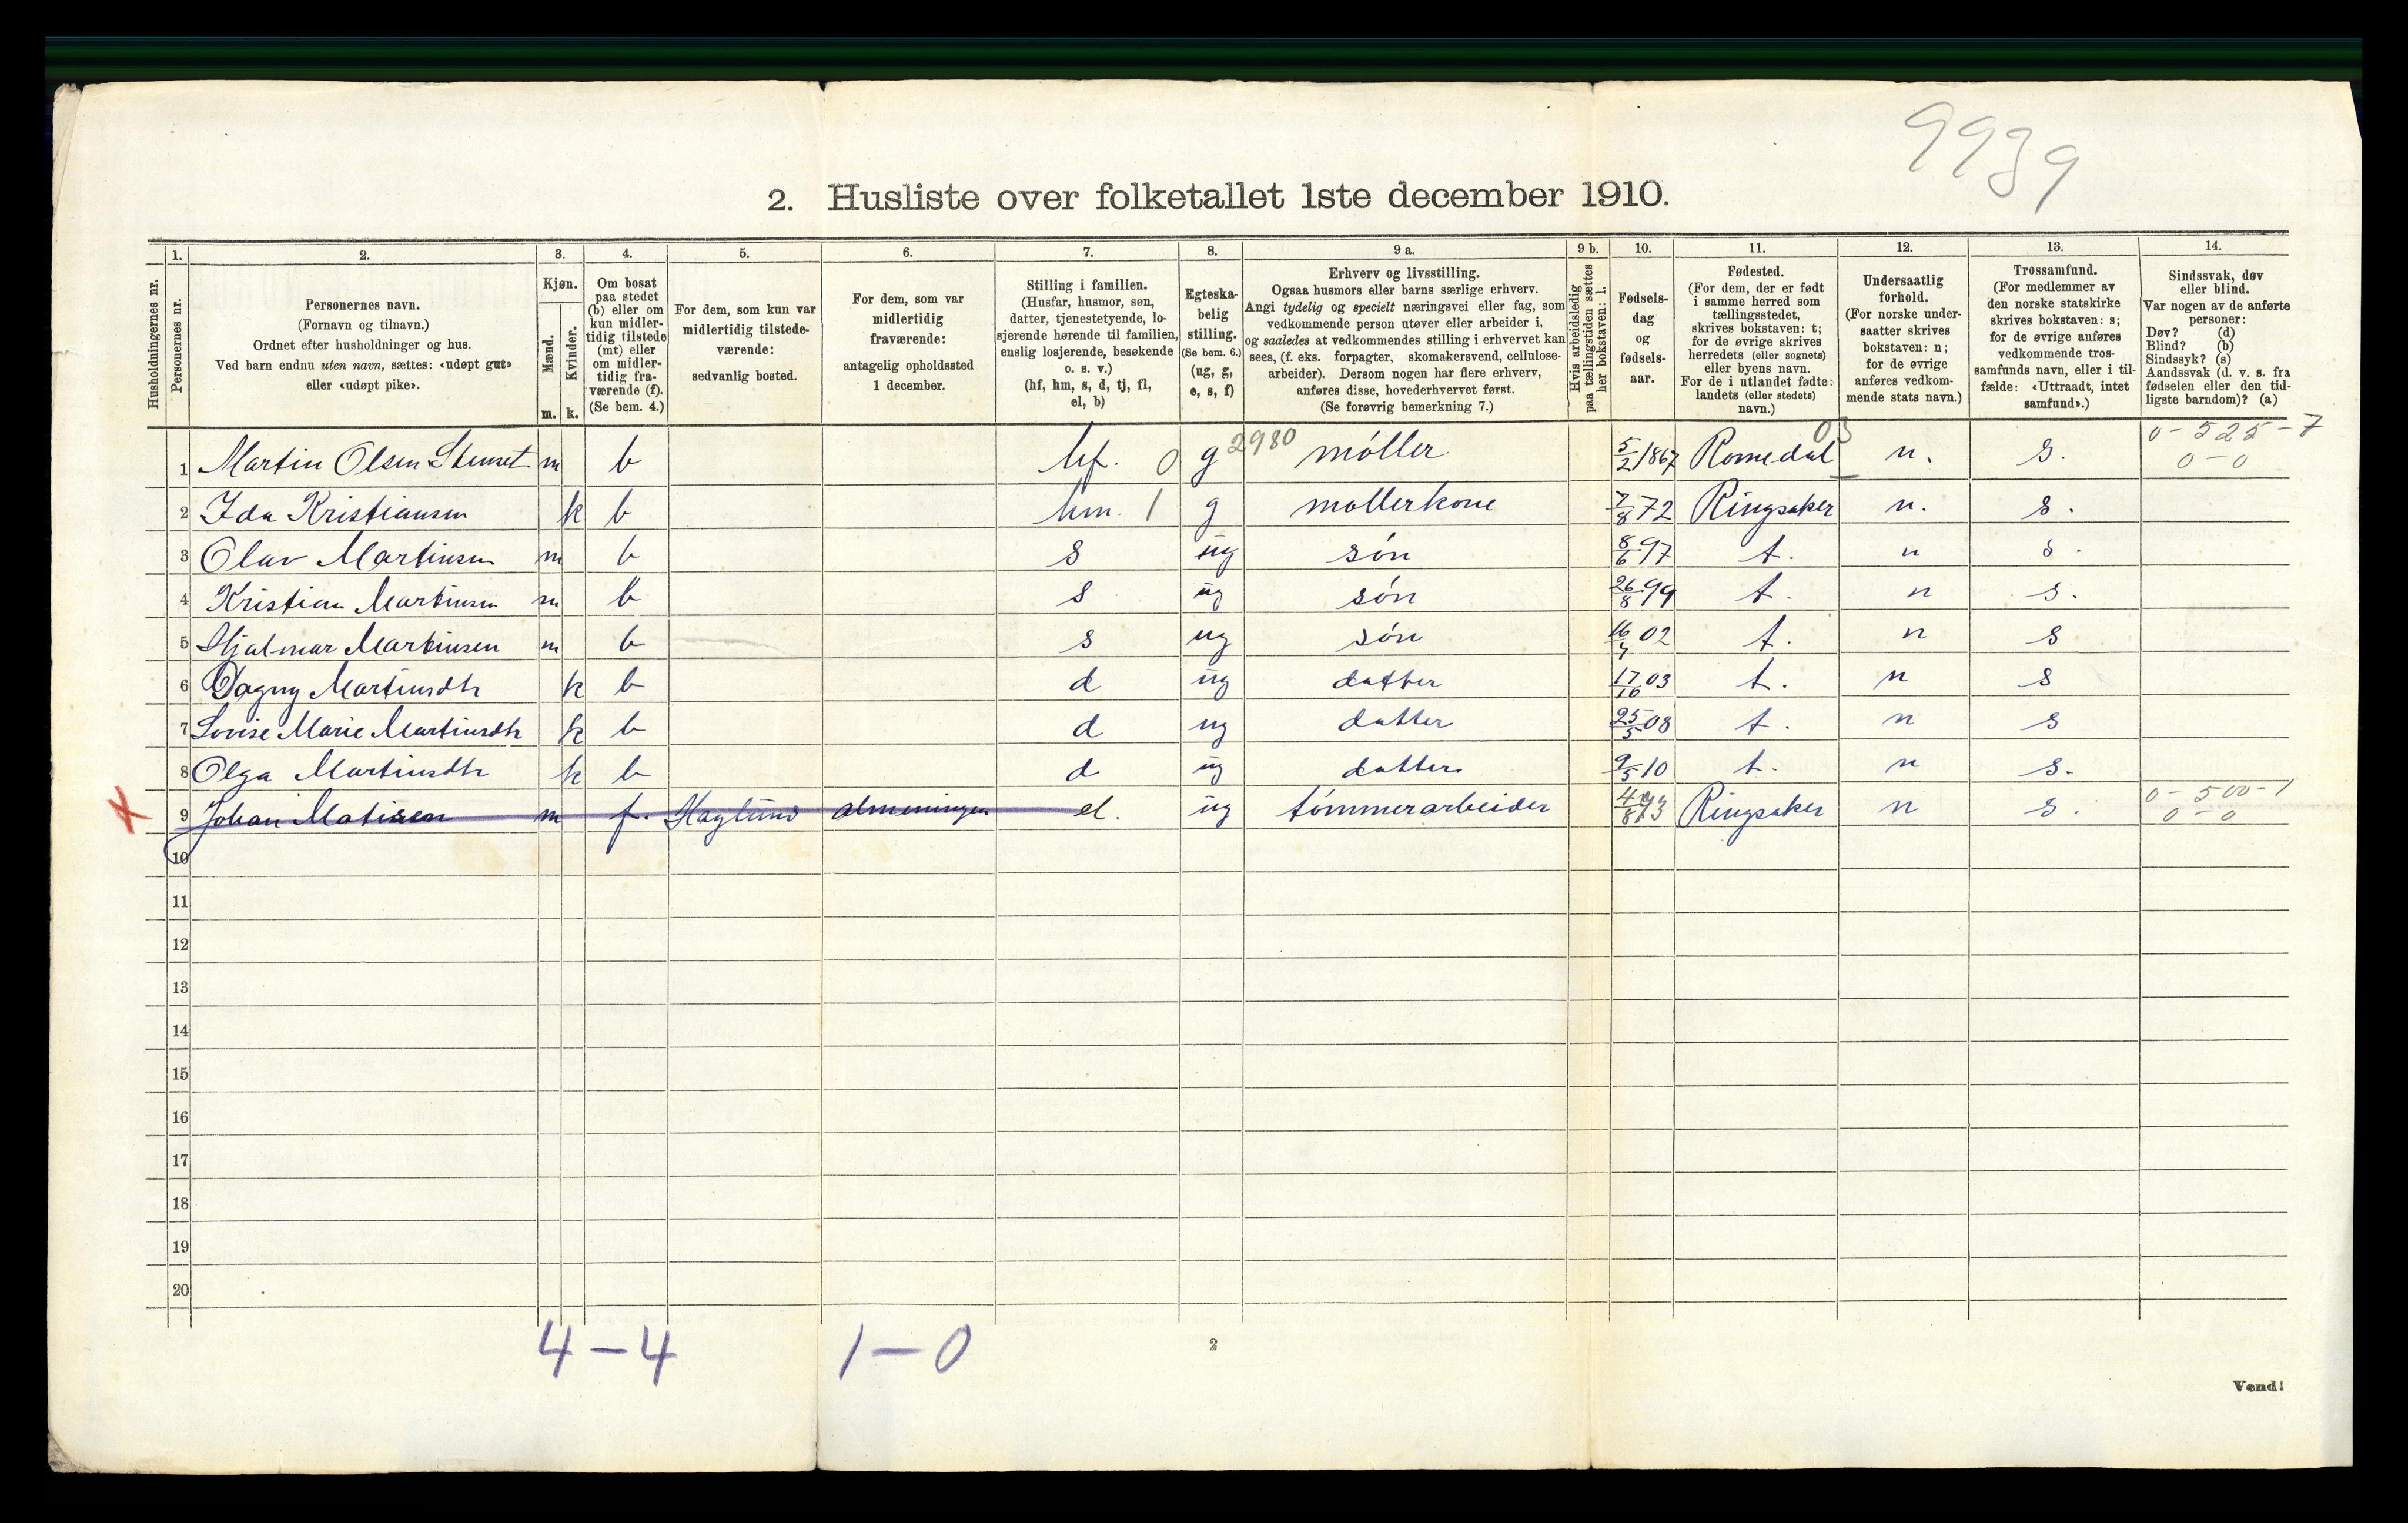 9939
2. Husliste over folketallet 1ste december 1910.
Husholdningernes nr.
1.
Personernes nr.
2.
Personernes navn.
(Fornavn og tilnavn.)
Ordnet efter husholdninger og hus.
Ved barn endnu uten navn, sættes: «udøpt gut»
eller «udøpt pike».
3.
Kjøn.
Mænd.
m.
Kvinder.
k.
4.
Om bosat
paa stedet
(b) eller om
kun midler-
tidig tilstede
(mt) eller
om midler-
tidig fra-
værende (f).
(Se bem. 4.)
5.
For dem, som kun var
midlertidig tilstede-
værende:
sedvanlig bosted.
6.
For dem, som var
midlertidig
fraværende:
antagelig opholdssted
1 december.
7.
Stilling i familien.
(Husfar, husmor, søn,
datter, tjenestetyende, lo-
sjerende hørende til familien,
enslig losjerende, besøkende
o. s. v.)
(hf, hm, s, d, tj, fl,
el, b)
8.
Egteska-
belig
stilling.
(Se bem. 6.)
(ug, g,
e, s, f)
9 a.
Erhverv og livsstilling.
Ogsaa husmors eller barns særlige erhverv.
Angi tydelig og specielt næringsvei eller fag, som
vedkommende person utøver eller arbeider i,
og saaledes at vedkommendes stilling i erhvervet kan
sees, (f. eks. forpagter, skomakersvend, cellulose-
arbeider). Dersom nogen har flere erhverv,
anføres disse, hovederhvervet først.
(Se forøvrig bemerkning 7.)
9 b.
Hvis arbeidsledig
paa tællingstiden sættes
her bokstaven: l.
10.
Fødsels-
dag
og
fødsels-
aar.
11.
Fødested.
(For dem, der er født
i samme herred som
tællingsstedet,
skrives bokstaven: t;
for de øvrige skrives
herredets (eller sognets)
eller byens navn.
For de i utlandet fødte:
landets (eller stedets)
navn.)
12.
Undersaatlig
forhold.
(For norske under-
saatter skrives
bokstaven: n;
for de øvrige
anføres vedkom-
mende stats navn.)
13.
Trossamfund.
(For medlemmer av
den norske statskirke
skrives bokstaven: s;
for de øvrige anføres
vedkommende tros-
samfunds navn, eller i til-
fælde: «Uttraadt, intet
samfund».)
14.
Sindssvak, døv
eller blind.
Var nogen av de anførte
personer:
Døv? (d)
Blind? (b)
Sindssyk? (s)
Aandssvak (d. v. s. fra
fødselen eller den tid-
ligste barndom)? (a)
1 Martin Olsen Stenset m b hf. 0 g 2980 møller 5/2 1867 Romedal 03 n. s. 0-525-7 0-0
2 Ida Kristiansen k b hm. 1 g møllerkone 7/8 72 Ringsaker n. s.
3 Olav Martinsen m b s ug søn 8/6 97 t. n s.
4 Kristian Martinsen m b s ug søn 26/8 99 t. n s.
5 Hjalmar Martinsen m b s ug søn 16 02 t. n s
6 Dagny Martinsdtr k b d ug datter 17/10 03 t. n s
7 Lovise Marie Martinsdtr k b d ug datter 25/5 08 t. n s
8 Olga Martinsdtr k b d ug datter 9/5 10 t. n s.
9 Johan Matisen m f. Haglund almenningen el. ug tømmerarbeider 4/8 Ringsaker n s. 0-500-1 0-0
10
11
12
13
14
15
16
17
18
19
20
4-4 1-0
2
Vend!